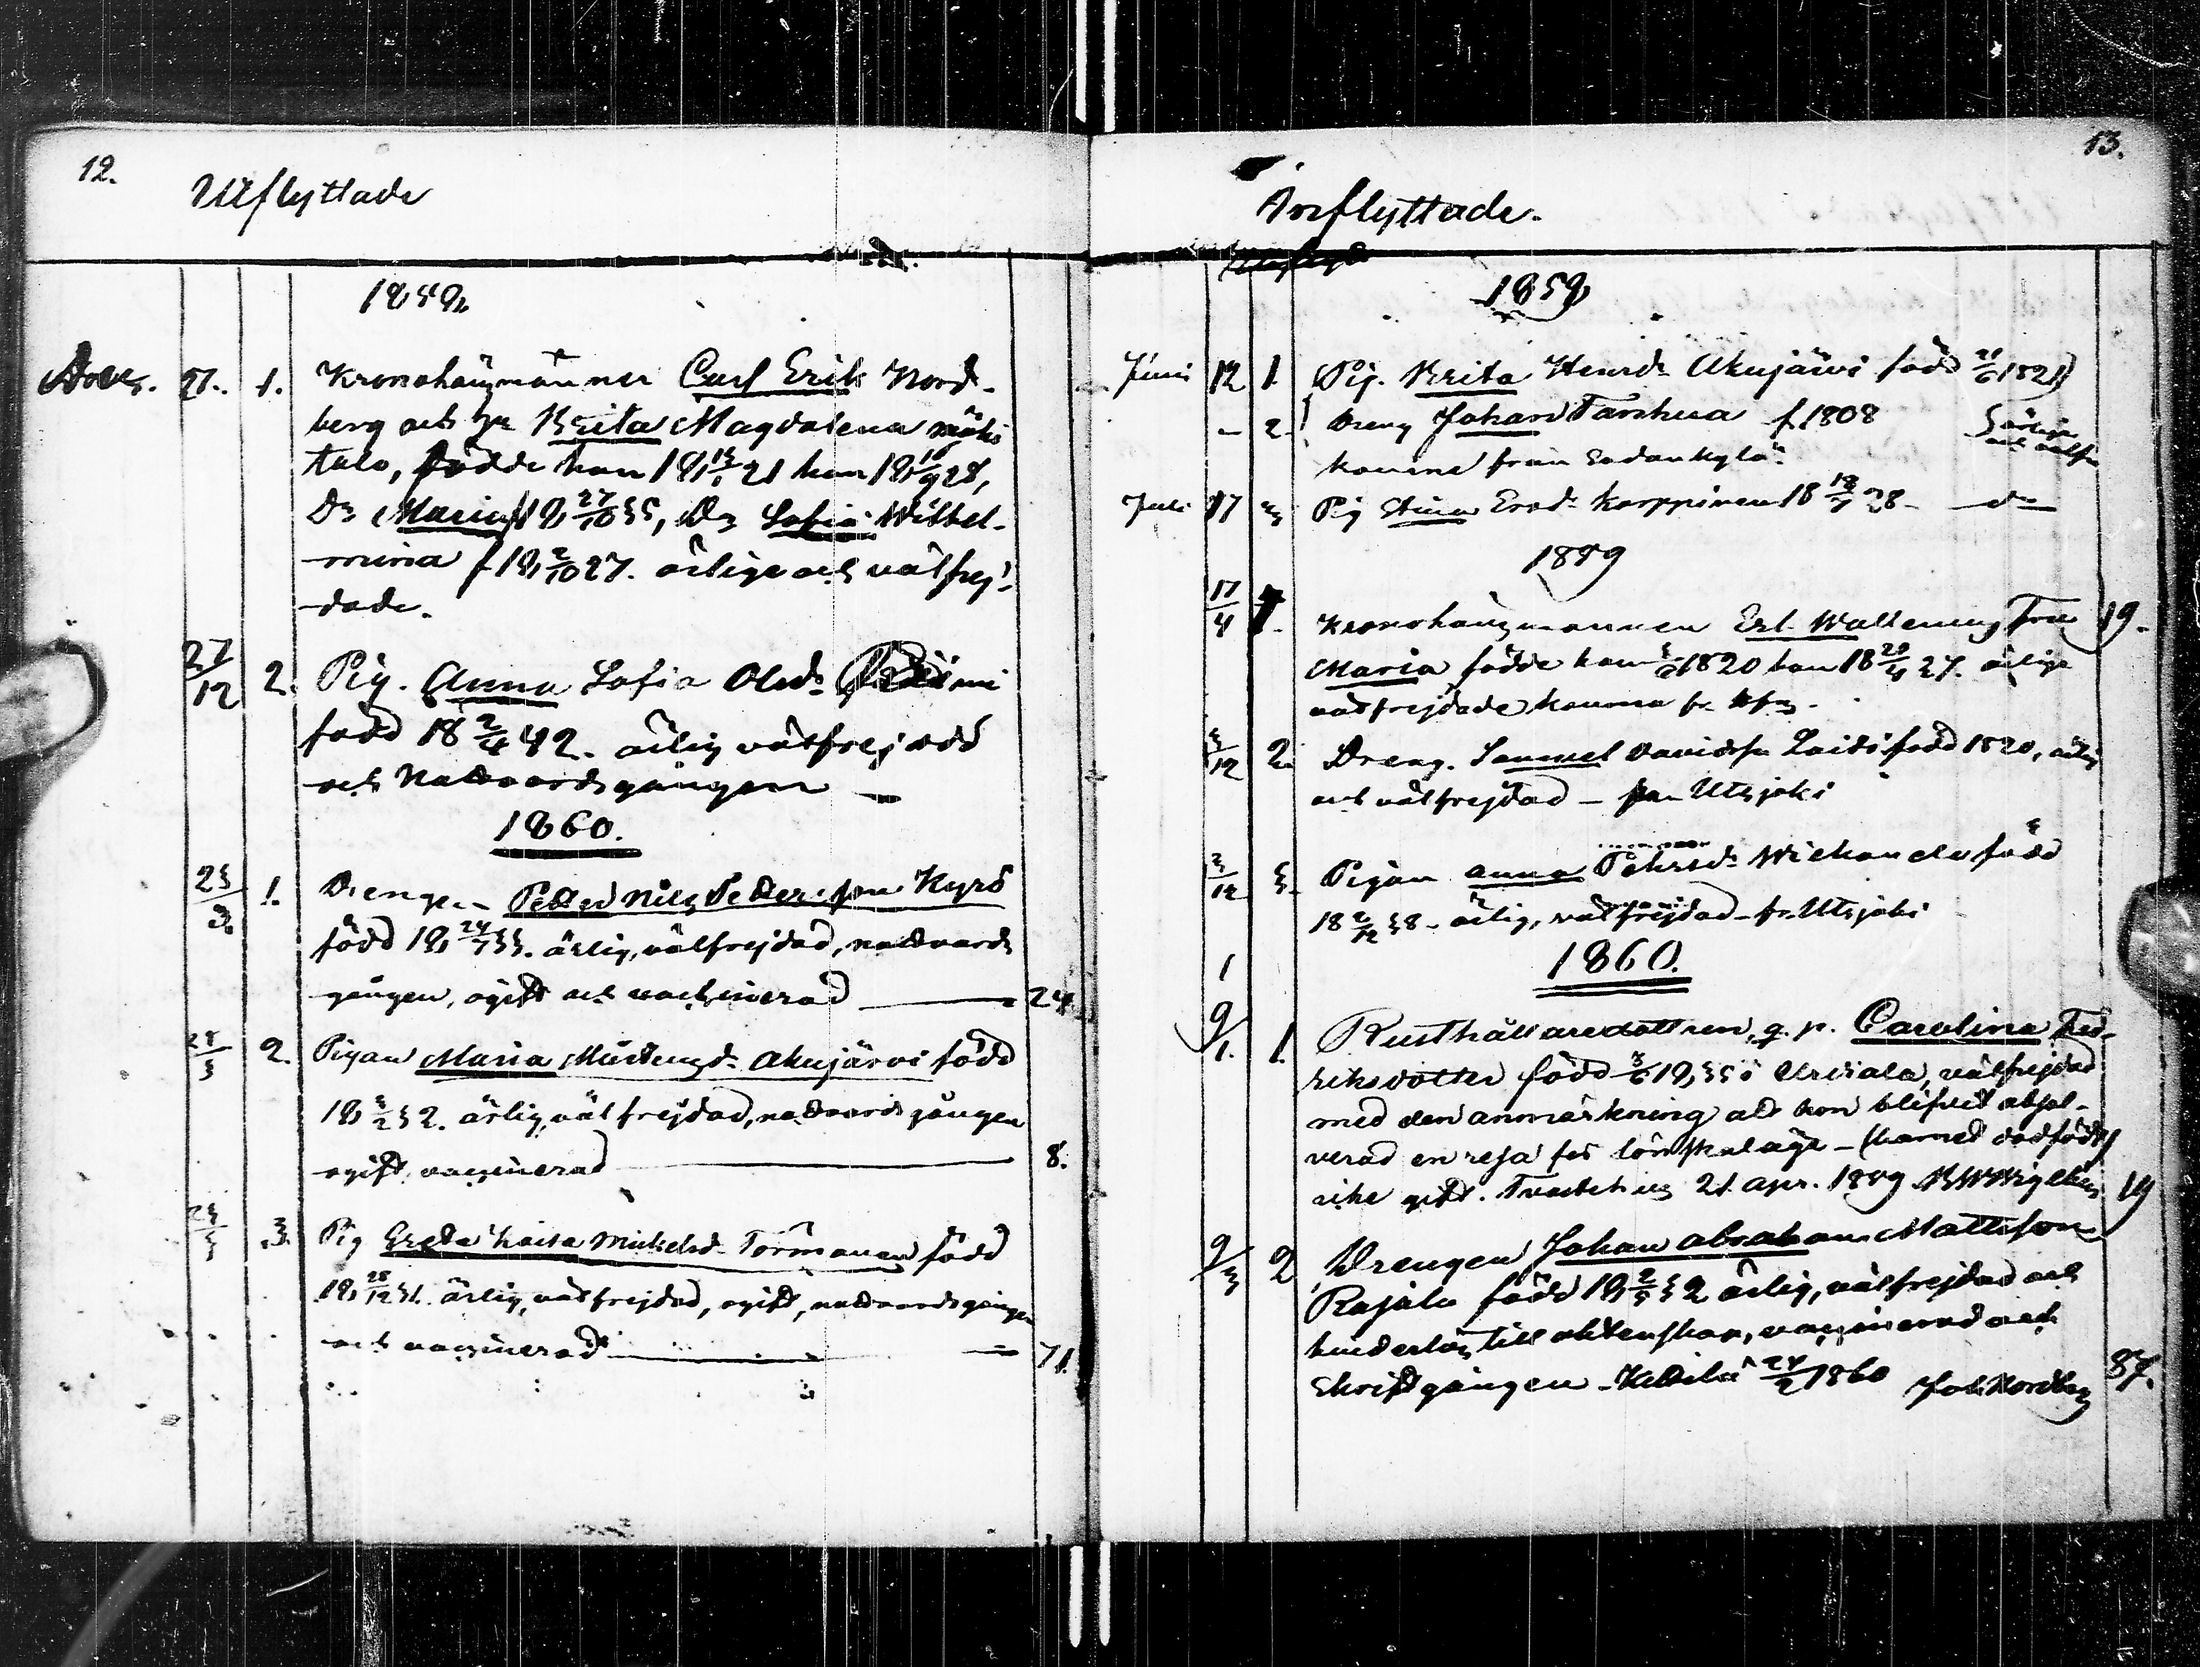 12.
Utflyttade
1859.
27. 1. Kronohäuzmannen Carl Erik Nord-
berg och h. Brita Magdalena
talo, födde han 18 21 hon 18 28,
Dr Maria 18 27/10 55, Dr Sofia Wilhel-
mina f 18 2/10 27. ärlige och välfrej-
dade.
27/12 2. Pig. Anna Sofia Olsdr
född 18 2/4 42. ärlig välfrejdad
och Nattvardsgången —
1860.
25/3 1. Drengen Petter Nils Pettersson Kyrö
född 18 24/7 33. ärlig, välfrejdad, nattvards
gången, ogift och vaccinerad — 24
25/3 2. Pigan Maria Akujärvi född
18 32. ärlig, välfrejdad, nattvardsgången
ogift, vaccinerad — 8.
25/3 3. Pig Greta Kaisa Mickelsd. Törmänen född
18 28/12 31. ärlig, välfrejdad, ogift, nattvardsgången
och vaccinerad — 71.
13.
Inflyttade.
1858
Juni 12 1. Pig. Brita Henrdr Akujärvi född 1821
- 2. Dreng Johan f. 1808 ärliga
och välfr
komne från Sodankylä
Juli 17 3 Pig Stina Ersdr Korppinen 18 28 - do
1859
17/4 1. Kronohäuzmannen Erl. Hustru 19.
Maria födde han 1820 hon 18 29/4 27. ärlige
välfrejdade komna fr.
3/12 2. Dreng. Samuel Davidsson Laiti född 1820, ärlig
och välfrejdad — från Utsjoki
3/12 3. Pigan Anna Pehrsdr född
18 2/12 38 - ärlig, välfrejdad - fr. Utsjoki
1860.
1
9/1. 1. Rusthållaredottren, q. p. Carolina Fred-
riksdotter född 3/6 1835 i Urdiala, välfrejdad
med den anmärkning att hon blifvit absol-
verad en resa för lönskaläge - (barnet dödfödt)
icke gift. 21 apr. 1859 19
9/3 2 Drengen Johan Abraham Mattsson
Rajala född 18 2/5 32 ärlig, välfrejdad och
hinderlös till äktenskap, vaccinerad och
skriftgången - Kittilä 24/2 1860 Joh. Nordberg 87.